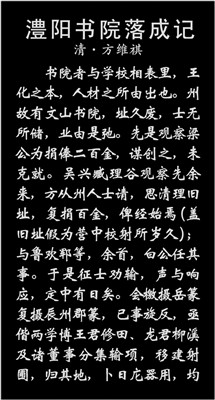 澧阳书院落成记
清·方维祺
书院者与学校相表里，王
化之本，人材之所由出也。州
故有文山书院，址久废，士无
所储，业由是弛。先是观察梁
公为捐俸二百金，谋创之，未
克就。吴兴臧理谷观察先余
来，方从州人士请，思清理旧
址，复捐百金，俾经始焉（盖
旧址假为营中校射所岁久）；
与鲁欢耶等，余首，白公任其
事。于是征士劝输，声与响
应，定中有日矣。会檄摄岳篆
复摄辰州郡篆，已事旋反，亟
偕两学博王君修田、龙君柳溪
及诸董事分集输项，移建射
圃，归其地，卜日庀器用，灼